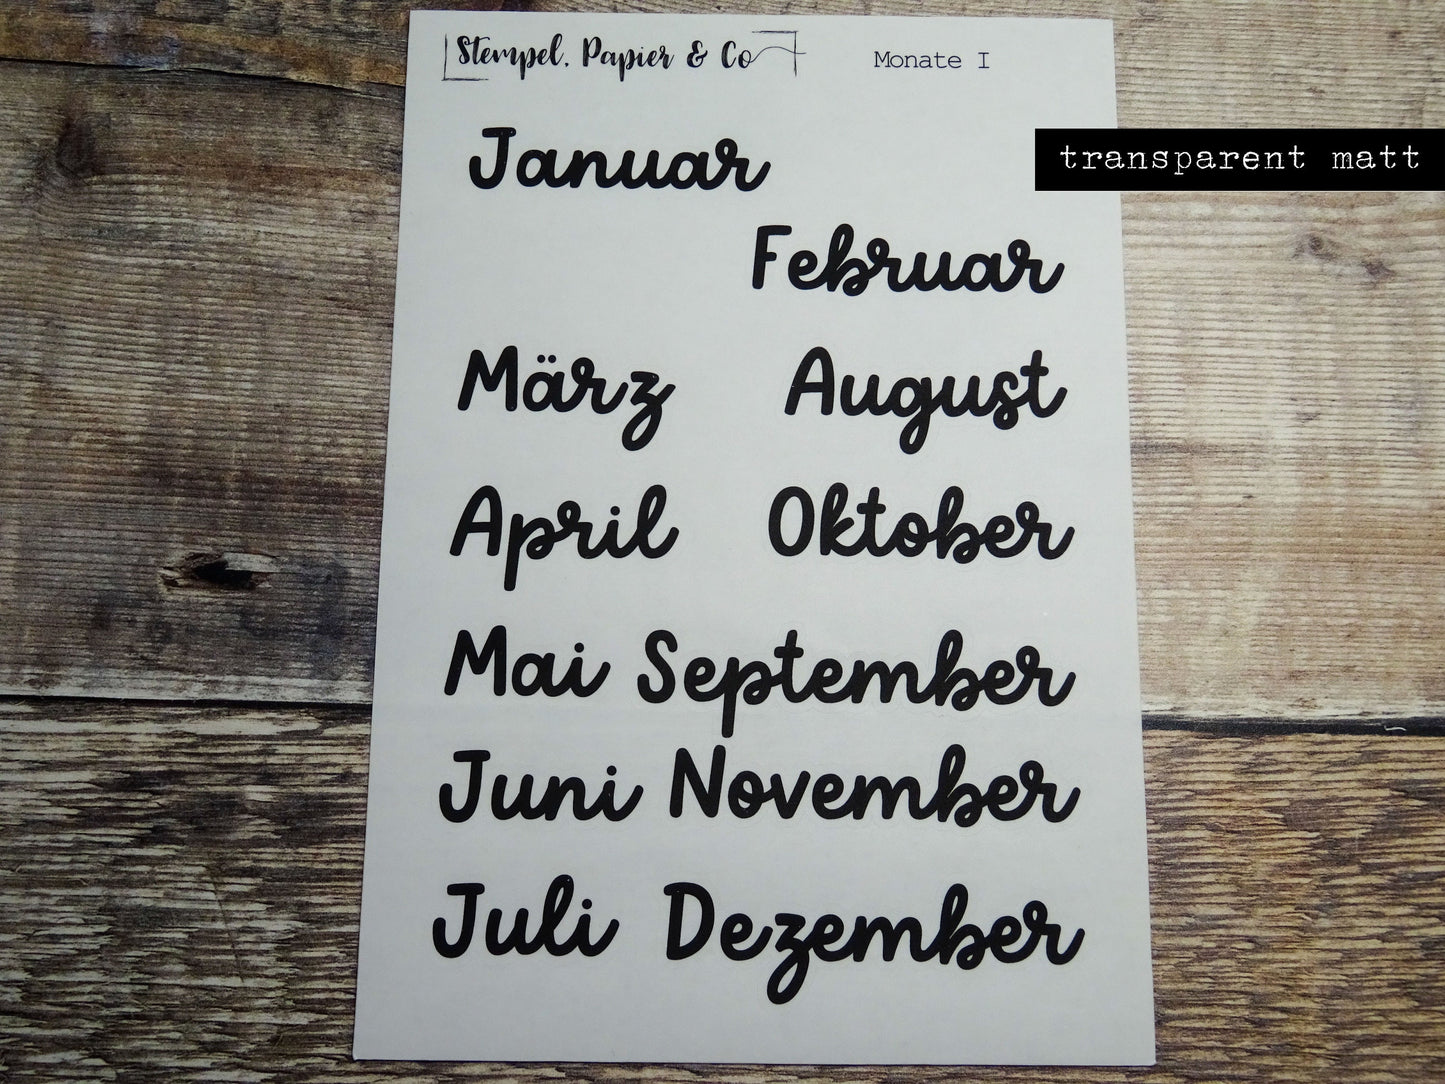 Stempel, Papier & Co
Monate I
transparent matt
Januar
Februar
März August
April Oktober
Mai September
Juni November
Juli Dezember